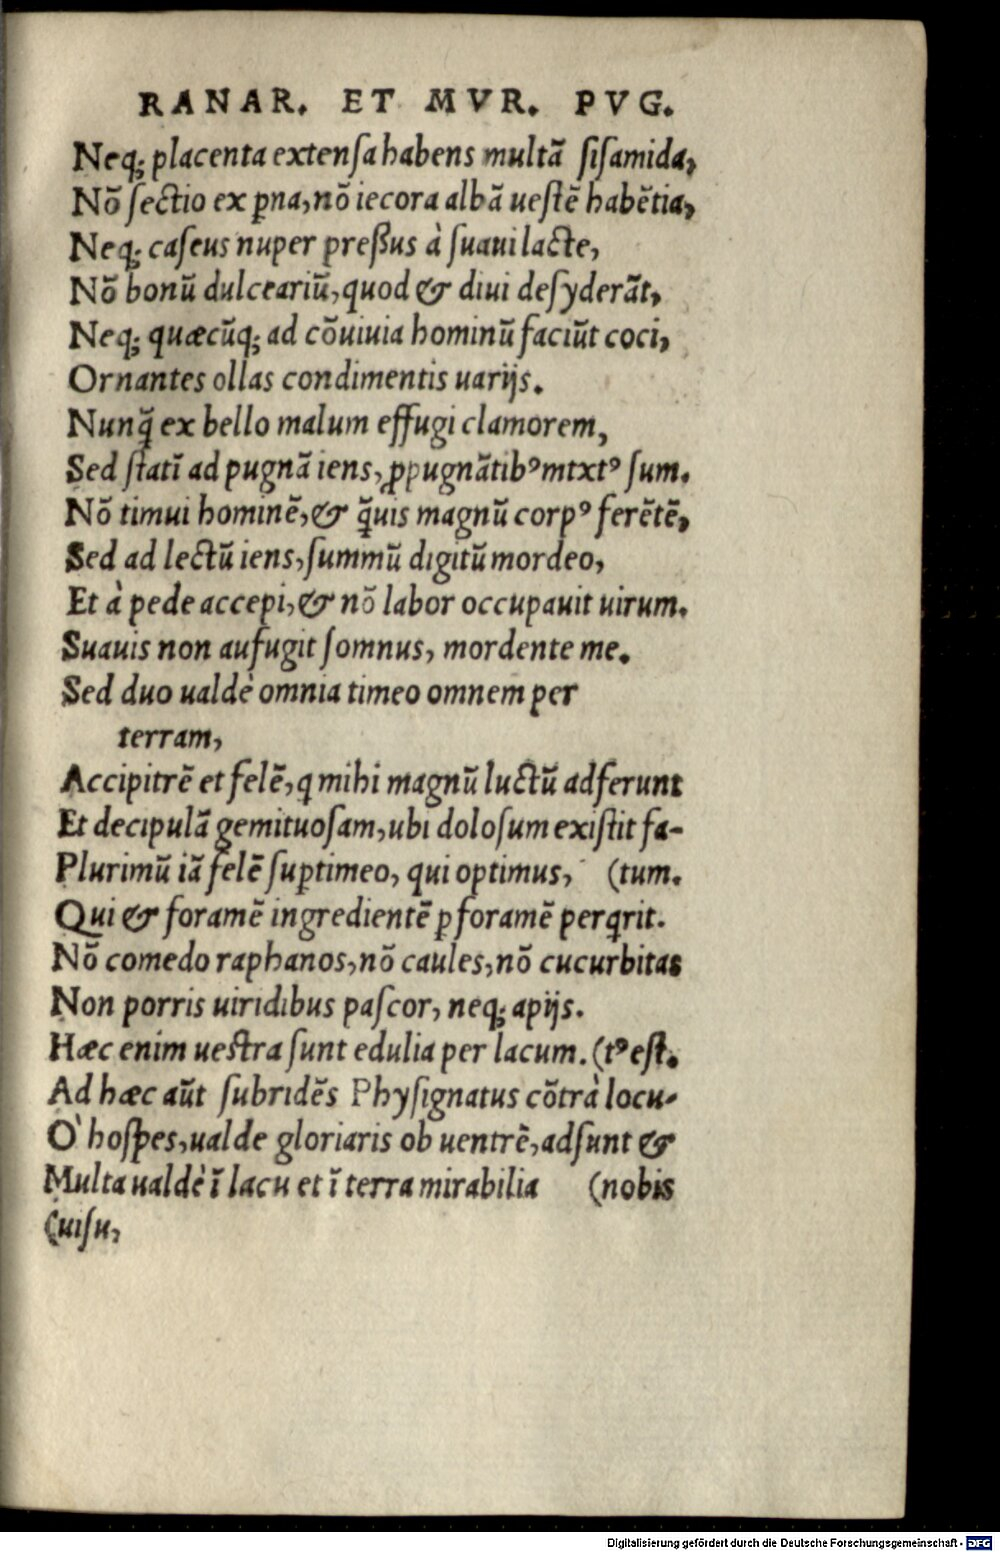 RANAR. ET MVR. PVG.
Neq; placenta extensa habens multā sisamida,
Nō sectio ex ꝑna, nō iecora albā uestē habētia,
Neq; caseus nuper preßus à suaui lacte,
Nō bonū dulceariū, quod & diui desyderāt,
Neq; quæcūq; ad cōuiuia hominū faciūt coci,
Ornantes ollas condimentis uarijs.
Nunq̄ ex bello malum effugi clamorem,
Sed statī ad pugnā iens, ꝓpugnātibꝰ mtxtꝰ sum.
Nō timui hominē, & q̄uis magnū corpꝰ ferētē,
Sed ad lectū iens, summū digitū mordeo,
Et à pede accepi, & nō labor occupauit uirum.
Suauis non aufugit somnus, mordente me.
Sed duo ualdè omnia timeo omnem per
terram,
Accipitrē et felē, q mihi magnū luctū adferunt
Et decipulā gemituosam, ubi dolosum existit fa-
Plurimū iā felē suꝑtimeo, qui optimus, (tum.
Qui & foramē ingredientē ꝑ foramē perqrit.
Nō comedo raphanos, nō caules, nō cucurbitas
Non porris uiridibus pascor, neq; apijs.
Hæc enim uestra sunt edulia per lacum. (tꝰ est.
Ad hæc aūt subridēs Physignatus cōtrà locu-
O` hospes, ualde gloriaris ob uentrē, adsunt &
Multa ualdè ī lacu et ī terra mirabilia (nobis
(uisu,
Digitalisierung gefördert durch die Deutsche Forschungsgemeinschaft - DFG